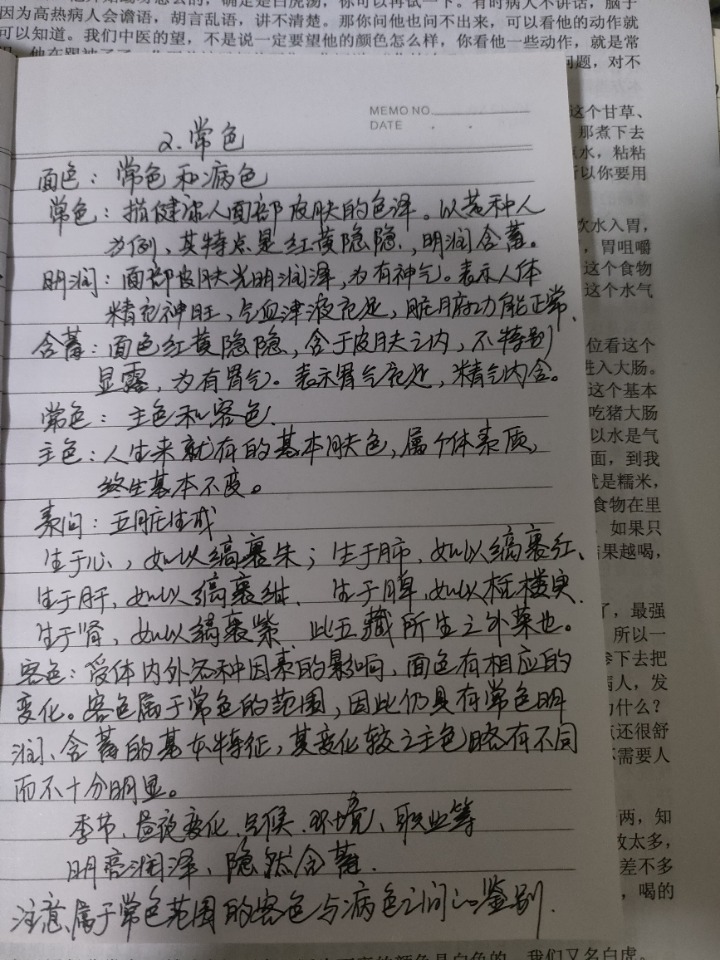 因为高热病人会谵语，胡言乱语，讲不清楚。那你问他也问不出来，可以看他的动作就
可以知道。我们中医的望，不是说一定要望他的颜色怎么样，你看他一些动作，就是常
问题，对不
MEMO NO
DATE
2.常色
面色：常色和病色
常色：指健康人面部皮肤的色泽。以黄种人
为例，其特点是红黄隐隐，明润含蓄。
明润：面部皮肤光明润泽，为有神气。表示人体
精充神旺，气血津液充足，脏腑功能正常、
含蓄：面色红黄隐隐，含于皮肤之内，不特别
显露，为有胃气。表示胃气充足，精气内含。
常色：主色和客色.
主色：人生来就有的基本肤色，属个体素质，
终生基本不变。
素问：五脏生成
生于心，如以缟裹朱；生于肺，如以缟裹红、
生于肝，如以缟裹绀、生于脾，如以栝楼实、
生于肾，如以缟裹紫、此五藏所生之外荣也。
客色：受体内外各种因素的影响，面色有相应的
变化。客色属于常色的范围，因此仍具有常色明
润、含蓄的基本特征，其变化较之主色略有不同
而不十分明显。
季节、昼夜变化、气候、环境、职业等
明亮润泽、隐然含蓄.
注意属于常色范围的客色与病色之间的鉴别.
这个甘草、
那煮下去
水，粘粘
所以你要用
饮水入胃，
，胃咀嚼
这个食物
这个水气
位看这个
进入大肠。
这个基本
吃猪大肠
以水是气
面，到我
就是糯米，
食物在里
如果只
结果越喝，
了，最强
所以一
参下去把
病人，发
为什么？
点还很舒
不需要人
两，知
放太多，
差不多
，喝的
我们又名白虎。